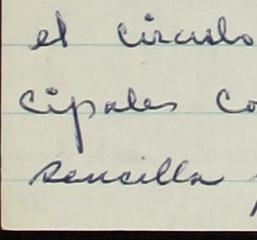 el círculo
cipales co
sencilla